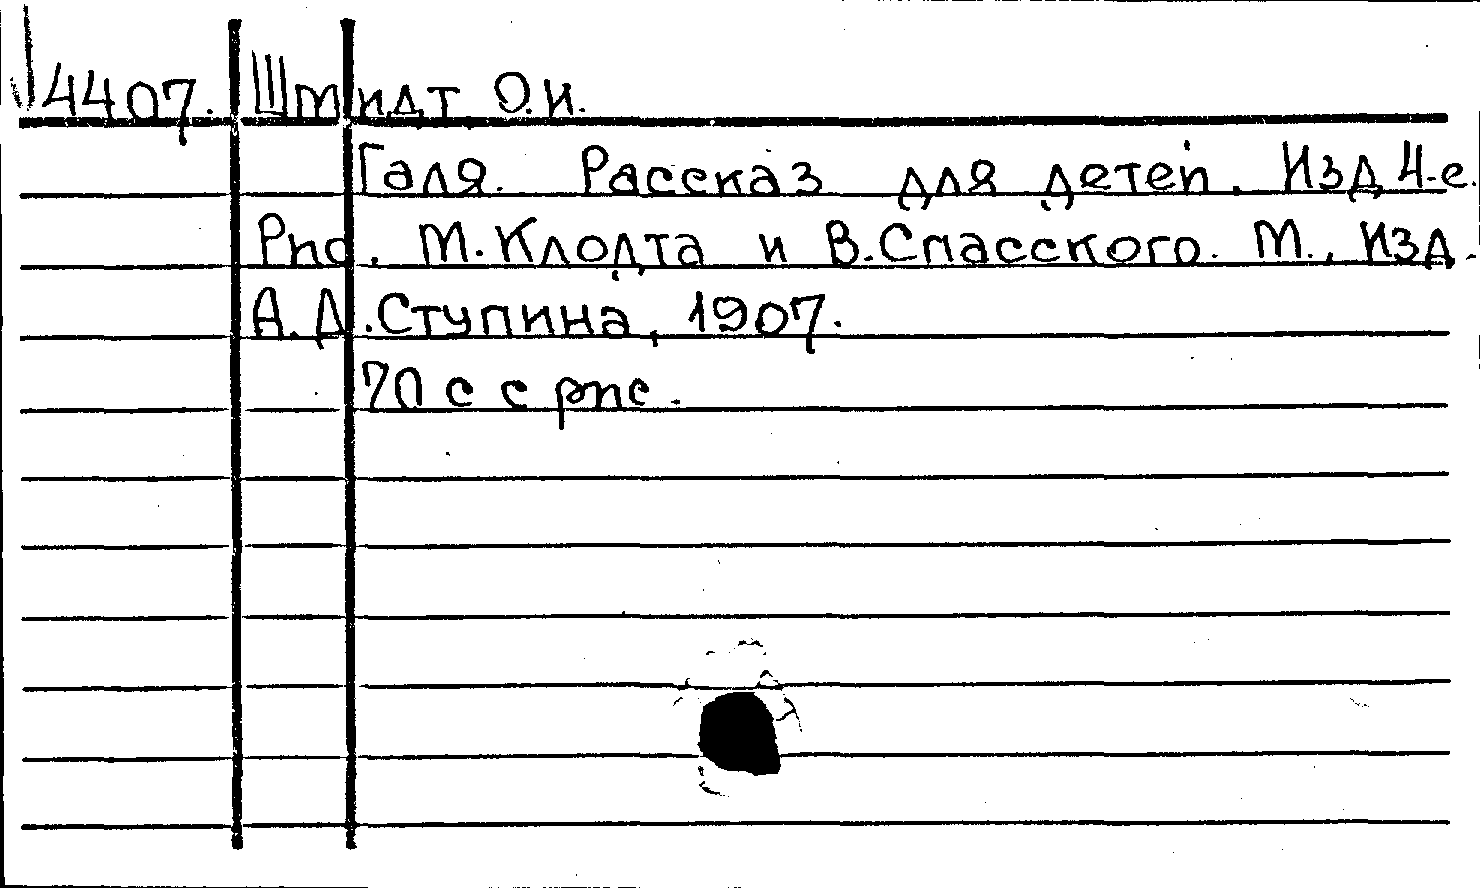 4407. Шмидт О.И.
Галя. Рассказ для детей. Изд 4-е.
Рис. М.Клодта и В.Спасского. М., Изд.
А.Д.Ступина, 1907.
70 с с рис.